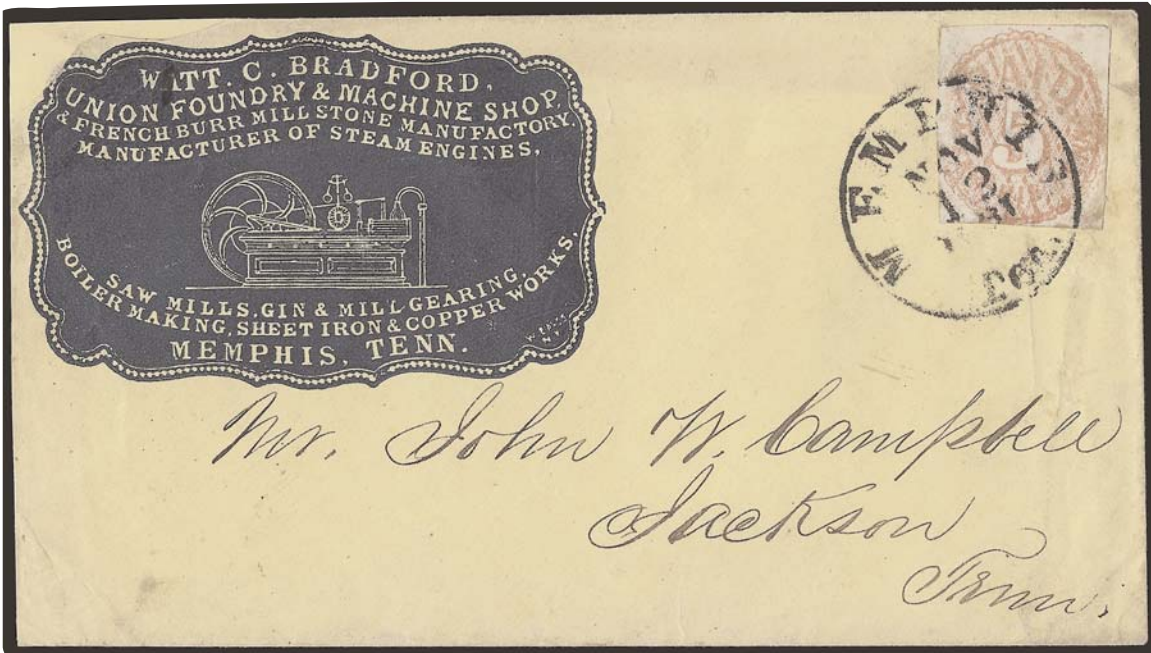 WITT. C. BRADFORD,
UNION FOUNDRY & MACHINE SHOP,
& FRENCH BURR MILL STONE MANUFACTORY,
MANUFACTURER OF STEAM ENGINES,
SAW MILLS, GIN & MILL GEARING,
BOILER MAKING, SHEET IRON & COPPER WORKS,
MEMPHIS, TENN.
N.Y.
MEMPHIS
NOV
Ten.
5
Mr. John W. Campbell
Jackson
Tenn.